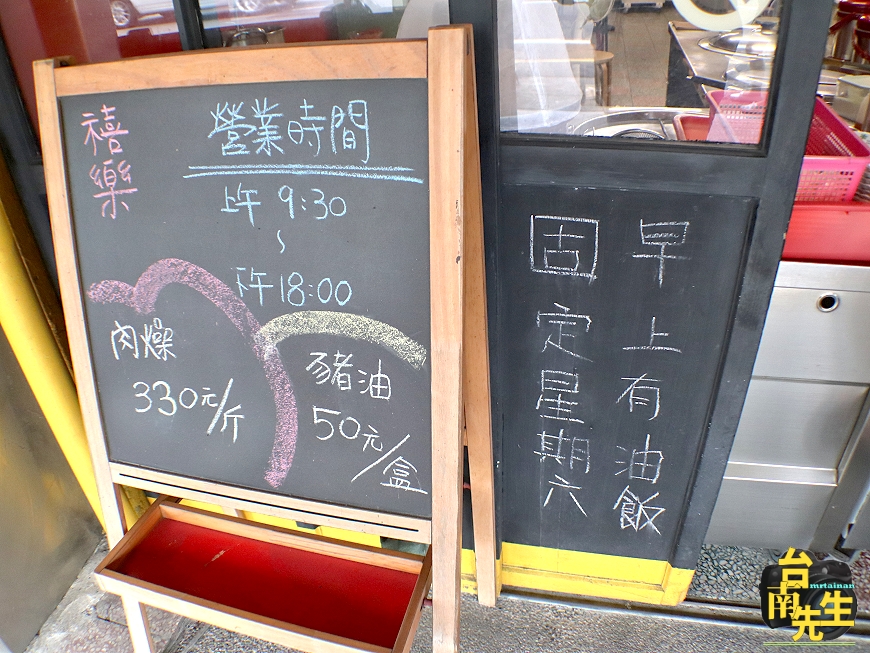 禧樂
營業時間
上午 9:30
~
下午 18:00
肉燥
330元/斤
豬油
50元/盒
早上有油飯
固定星期六
台南先生
mrtainan